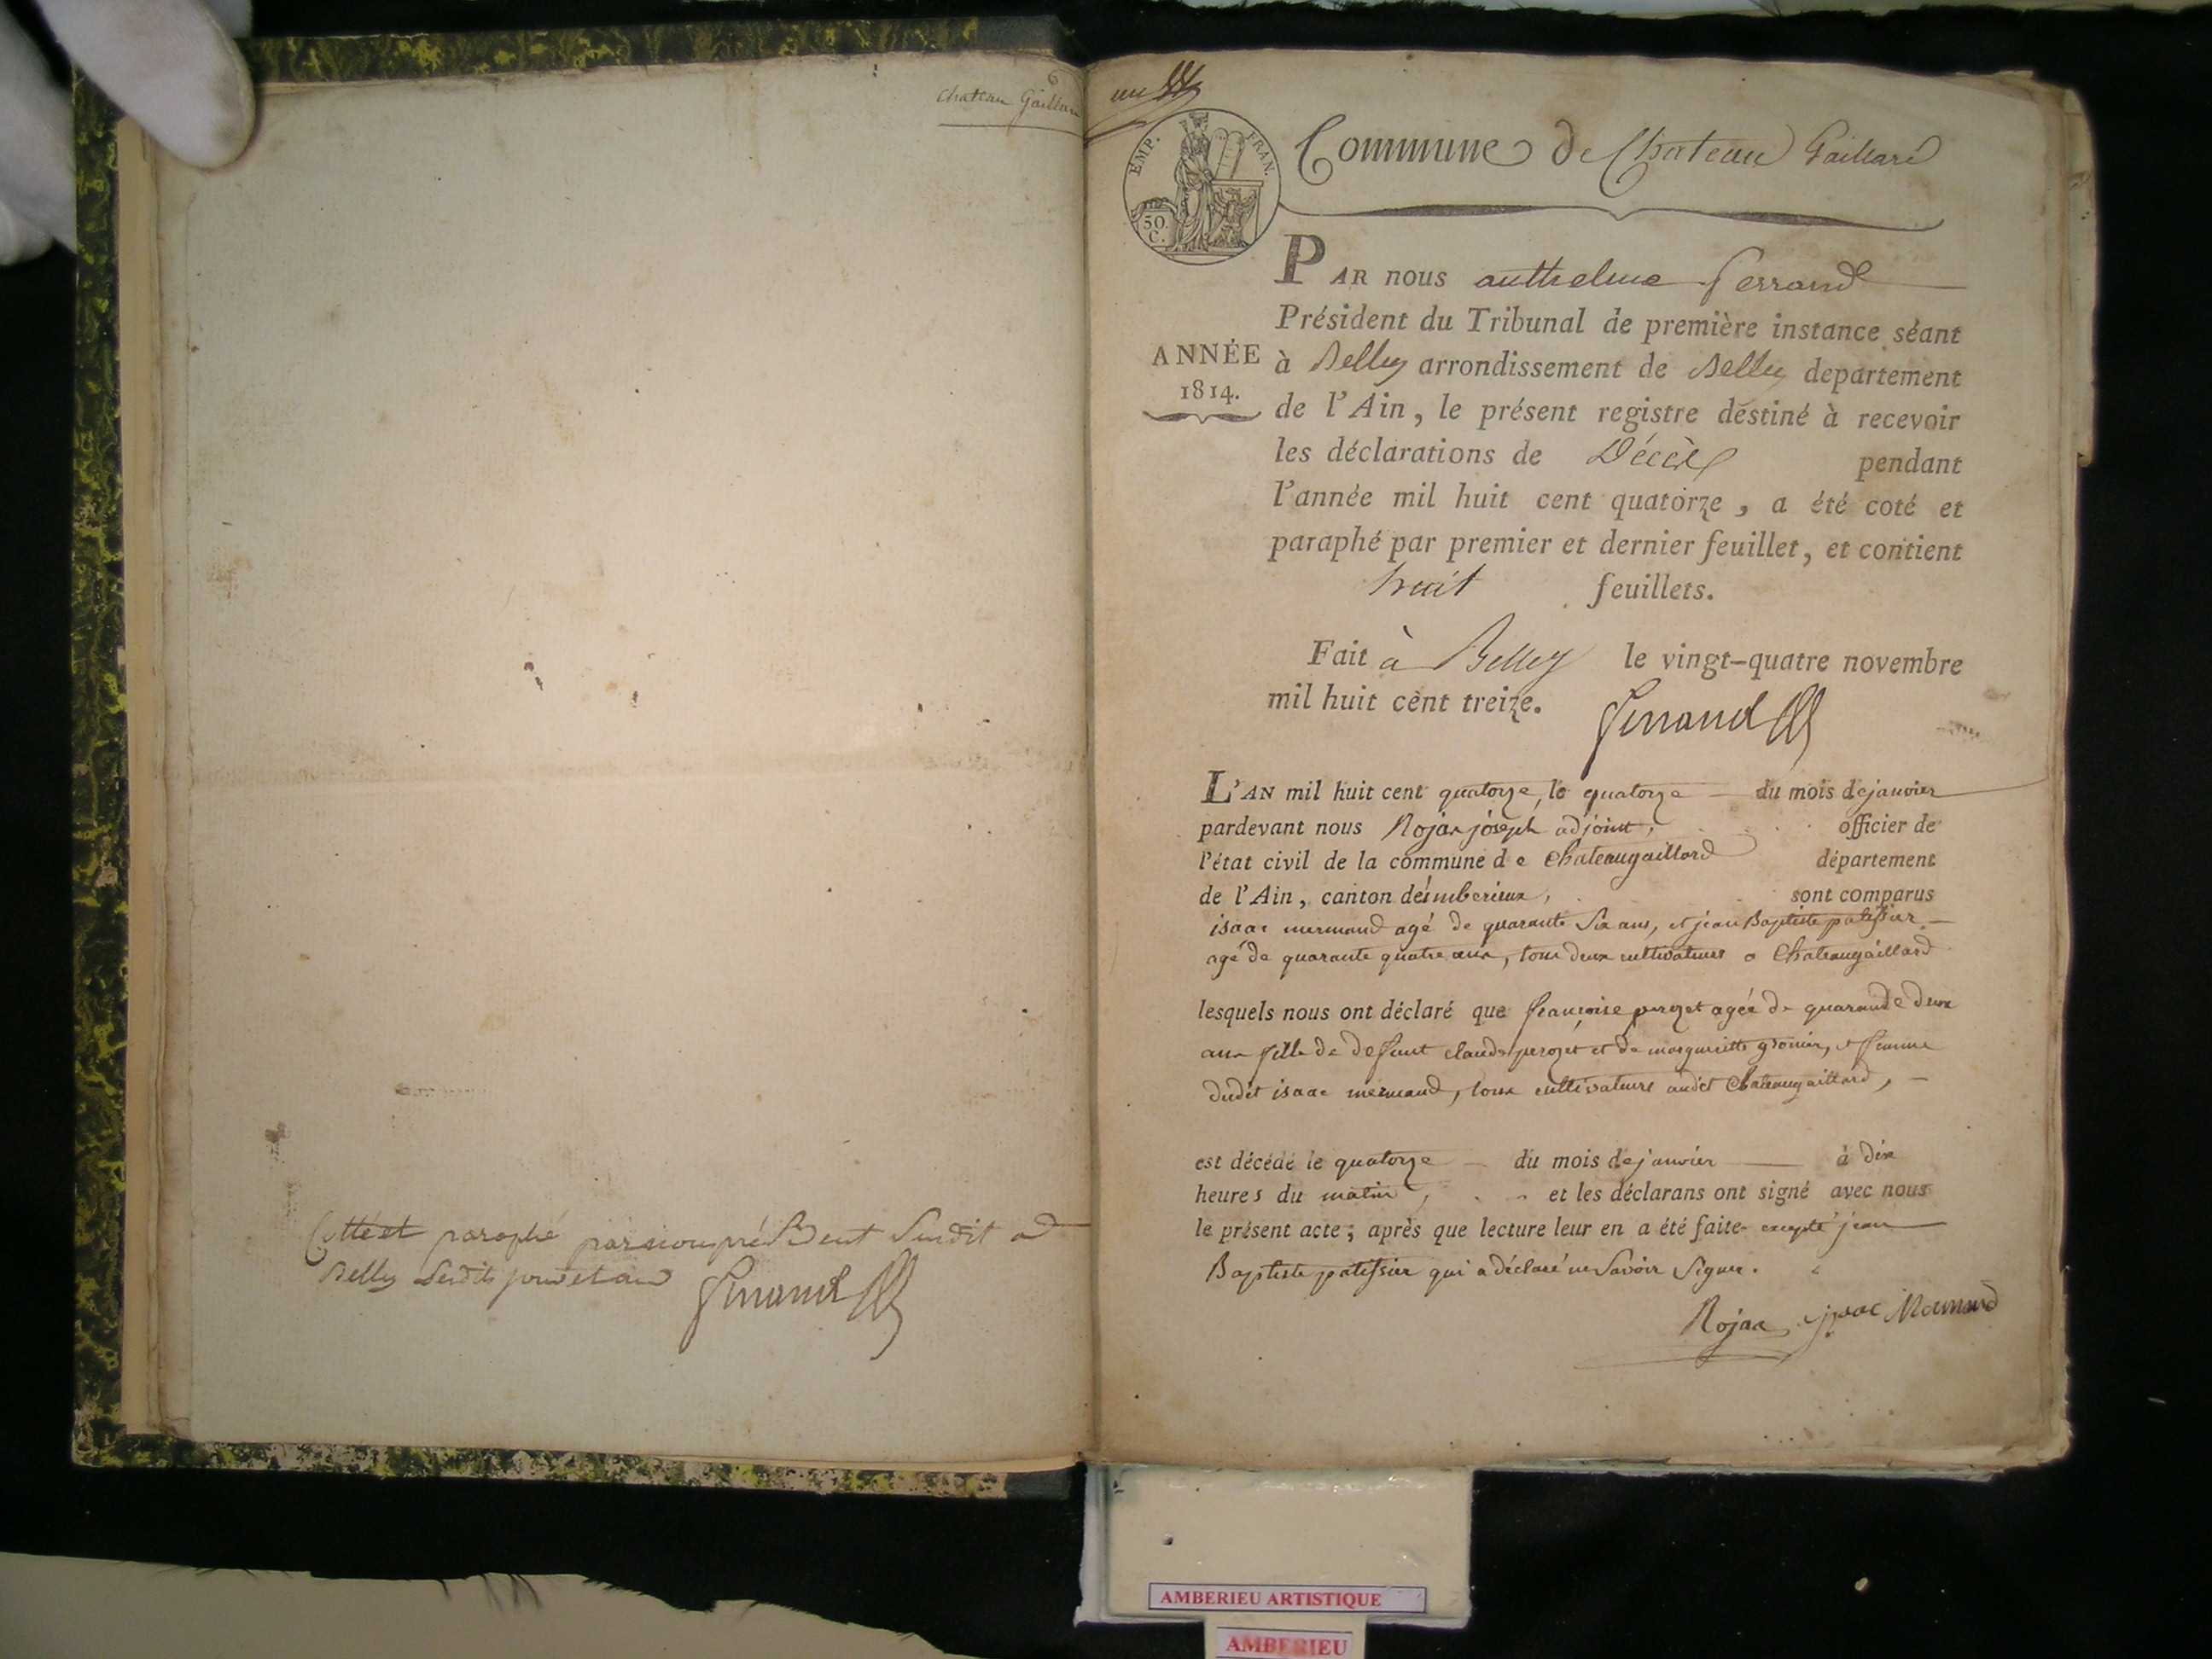 Chateau Gaillard
Cotté et paraphé par nous président susdit à
Belley lesdits jour et an Ferrand
un
EMP. FRAN.
50.
C.
Commune de Chateau Gaillard
PAR nous anthelme ferrand
Président du Tribunal de première instance séant
ANNÉE
1814.
à Belley arrondissement de Belley departement
de l'Ain, le présent registre destiné à recevoir
les déclarations de Décès pendant
l'année mil huit cent quatorze, a été coté et
paraphé par premier et dernier feuillet, et contient
huit feuillets.
Fait à Belley le vingt-quatre novembre
mil huit cent treize. Ferrand
L'AN mil huit cent quatorze, le quatorze du mois de janvier
pardevant nous Rojat joseph adjoint, officier de
l'état civil de la commune de Chateaugaillard département
de l'Ain, canton de amberieux, sont comparus
isaac mermand agé de quarante Six ans, et jean Baptiste patissier
agé de quarante quatre ans, tous deux cultivateurs a Chateaugaillard
lesquels nous ont déclaré que françoise perozet agée de quarande deux
ans fille de defunt claude perozet et de margueritte, et femme
dudit isaac mermand, tous cultivateurs audit Chateaugaillard,
est décédé le quatorze du mois de janvier à dix
heures du matin, et les déclarans ont signé avec nous
le présent acte; après que lecture leur en a été faite excepté jean
Baptiste patissier qui a déclaré ne Savoir Signer.
isaac Mermand
AMBERIEU ARTISTIQUE
AMBERIEU